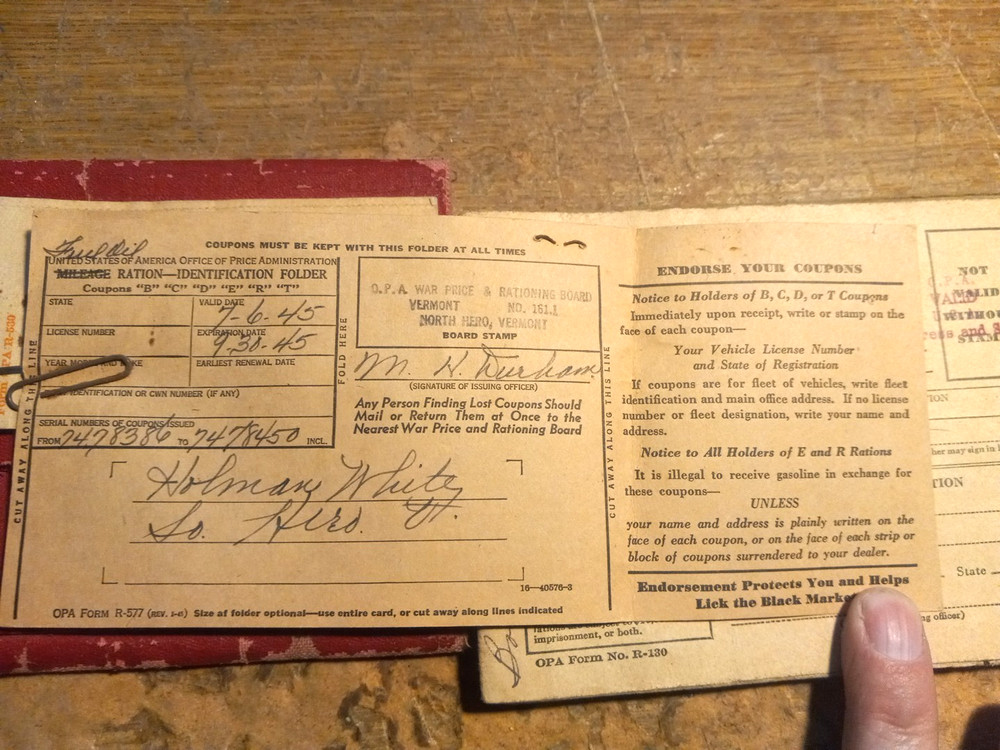 Fuel Oil
COUPONS MUST BE KEPT WITH THIS FOLDER AT ALL TIMES
UNITED STATES OF AMERICA OFFICE OF PRICE ADMINISTRATION
MILEAGE RATION—IDENTIFICATION FOLDER
Coupons "B" "C" "D" "E" "R" "T"
STATE
VALID DATE
7-6-45
LICENSE NUMBER
EXPIRATION DATE
9-30-45
YEAR MODEL AND MAKE
EARLIEST RENEWAL DATE
IDENTIFICATION OR OWN NUMBER (IF ANY)
SERIAL NUMBERS OF COUPONS ISSUED
FROM 7478386 TO 7478450 INCL.
CUT AWAY ALONG THIS LINE
FOLD HERE
O.P.A. WAR PRICE & RATIONING BOARD
VERMONT NO. 161.1
NORTH HERO, VERMONT
BOARD STAMP
M. H. Durham
(SIGNATURE OF ISSUING OFFICER)
Any Person Finding Lost Coupons Should
Mail or Return Them at Once to the
Nearest War Price and Rationing Board
Holman White
So. Hero. Vt.
16—40576-3
OPA FORM R-577 (REV. 1-45) Size of folder optional—use entire card, or cut away along lines indicated
CUT AWAY ALONG THIS LINE
ENDORSE YOUR COUPONS
Notice to Holders of B, C, D, or T Coupons
Immediately upon receipt, write or stamp on the
face of each coupon—
Your Vehicle License Number
and State of Registration
If coupons are for fleet of vehicles, write fleet
identification and main office address. If no license
number or fleet designation, write your name and
address.
Notice to All Holders of E and R Rations
It is illegal to receive gasoline in exchange for
these coupons—
UNLESS
your name and address is plainly written on the
face of each coupon, or on the face of each strip or
block of coupons surrendered to your dealer.
Endorsement Protects You and Helps
Lick the Black Marke
imprisonment, or both.
OPA Form No. R-130
NOT
VALID
WITHOU
STAM
O.P.A.
VALID
State
ng officer)
her may sign in
TION